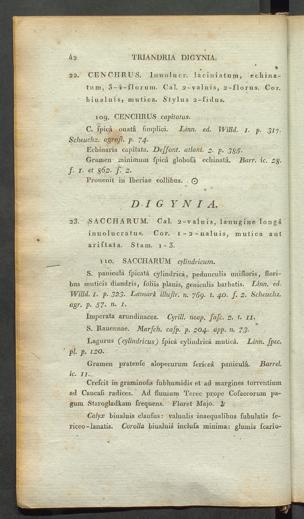 42 TRIANDRIA DIGYNIA.
22. CENCHRUS. Inuolucr. laciniatum, echina-
tum, 3-4-florum. Cal. 2-valuis, 2-florus. Cor.
biualuis, mutica. Stylus 2-fidus.
109. CENCHRUS capitatus.
C. spicâ ouatâ simplici. Linn. ed. Willd. 1. p. 317.
Scheuchz. agrost. p. 74.
Echinaria capitata. Desfont. atlant. 2. p. 385.
Gramen minimum spicâ globosâ echinatâ. Barr. ic. 28.
f. 1. et 862. f. 2.
Prouenit in Iberiae collibus. ☉
DIGYNIA.
23. SACCHARUM. Cal. 2-valuis, lanugine longâ
inuolucratus. Cor. 1-2-ualuis, mutica aut
aristata. Stam. 1-3.
110. SACCHARUM cylindricum.
S. paniculâ spicatâ cylindricâ, pedunculis unifloris, flori-
bus muticis diandris, foliis planis, geniculis barbatis. Linn. ed.
Willd. 1. p. 323. Lamark illustr. n. 769. t. 40. f. 2. Scheuchz.
agr. p. 57. n. 1.
Imperata arundinacea. Cyrill. neap. fasc. 2. t. 11.
S. Rauennae. Marsch. casp. p. 204. app. n. 73.
Lagurus (cylindricus) spicâ cylindricâ muticâ. Linn. spec.
pl. p. 120.
Gramen pratense alopecurum sericeâ paniculâ. Barrel.
ic. 11.
Crescit in graminosis subhumidis et ad margines torrentium
ad Caucasi radices. Ad flumium Terec prope Cosaccorum pa-
gum Starogladkam frequens. Floret Majo. ♃
Calyx biualuis clausus: valuulis inaequalibus subulatis se-
riceo-lanatis. Corolla biualuis inclusa minima: glumis scario-